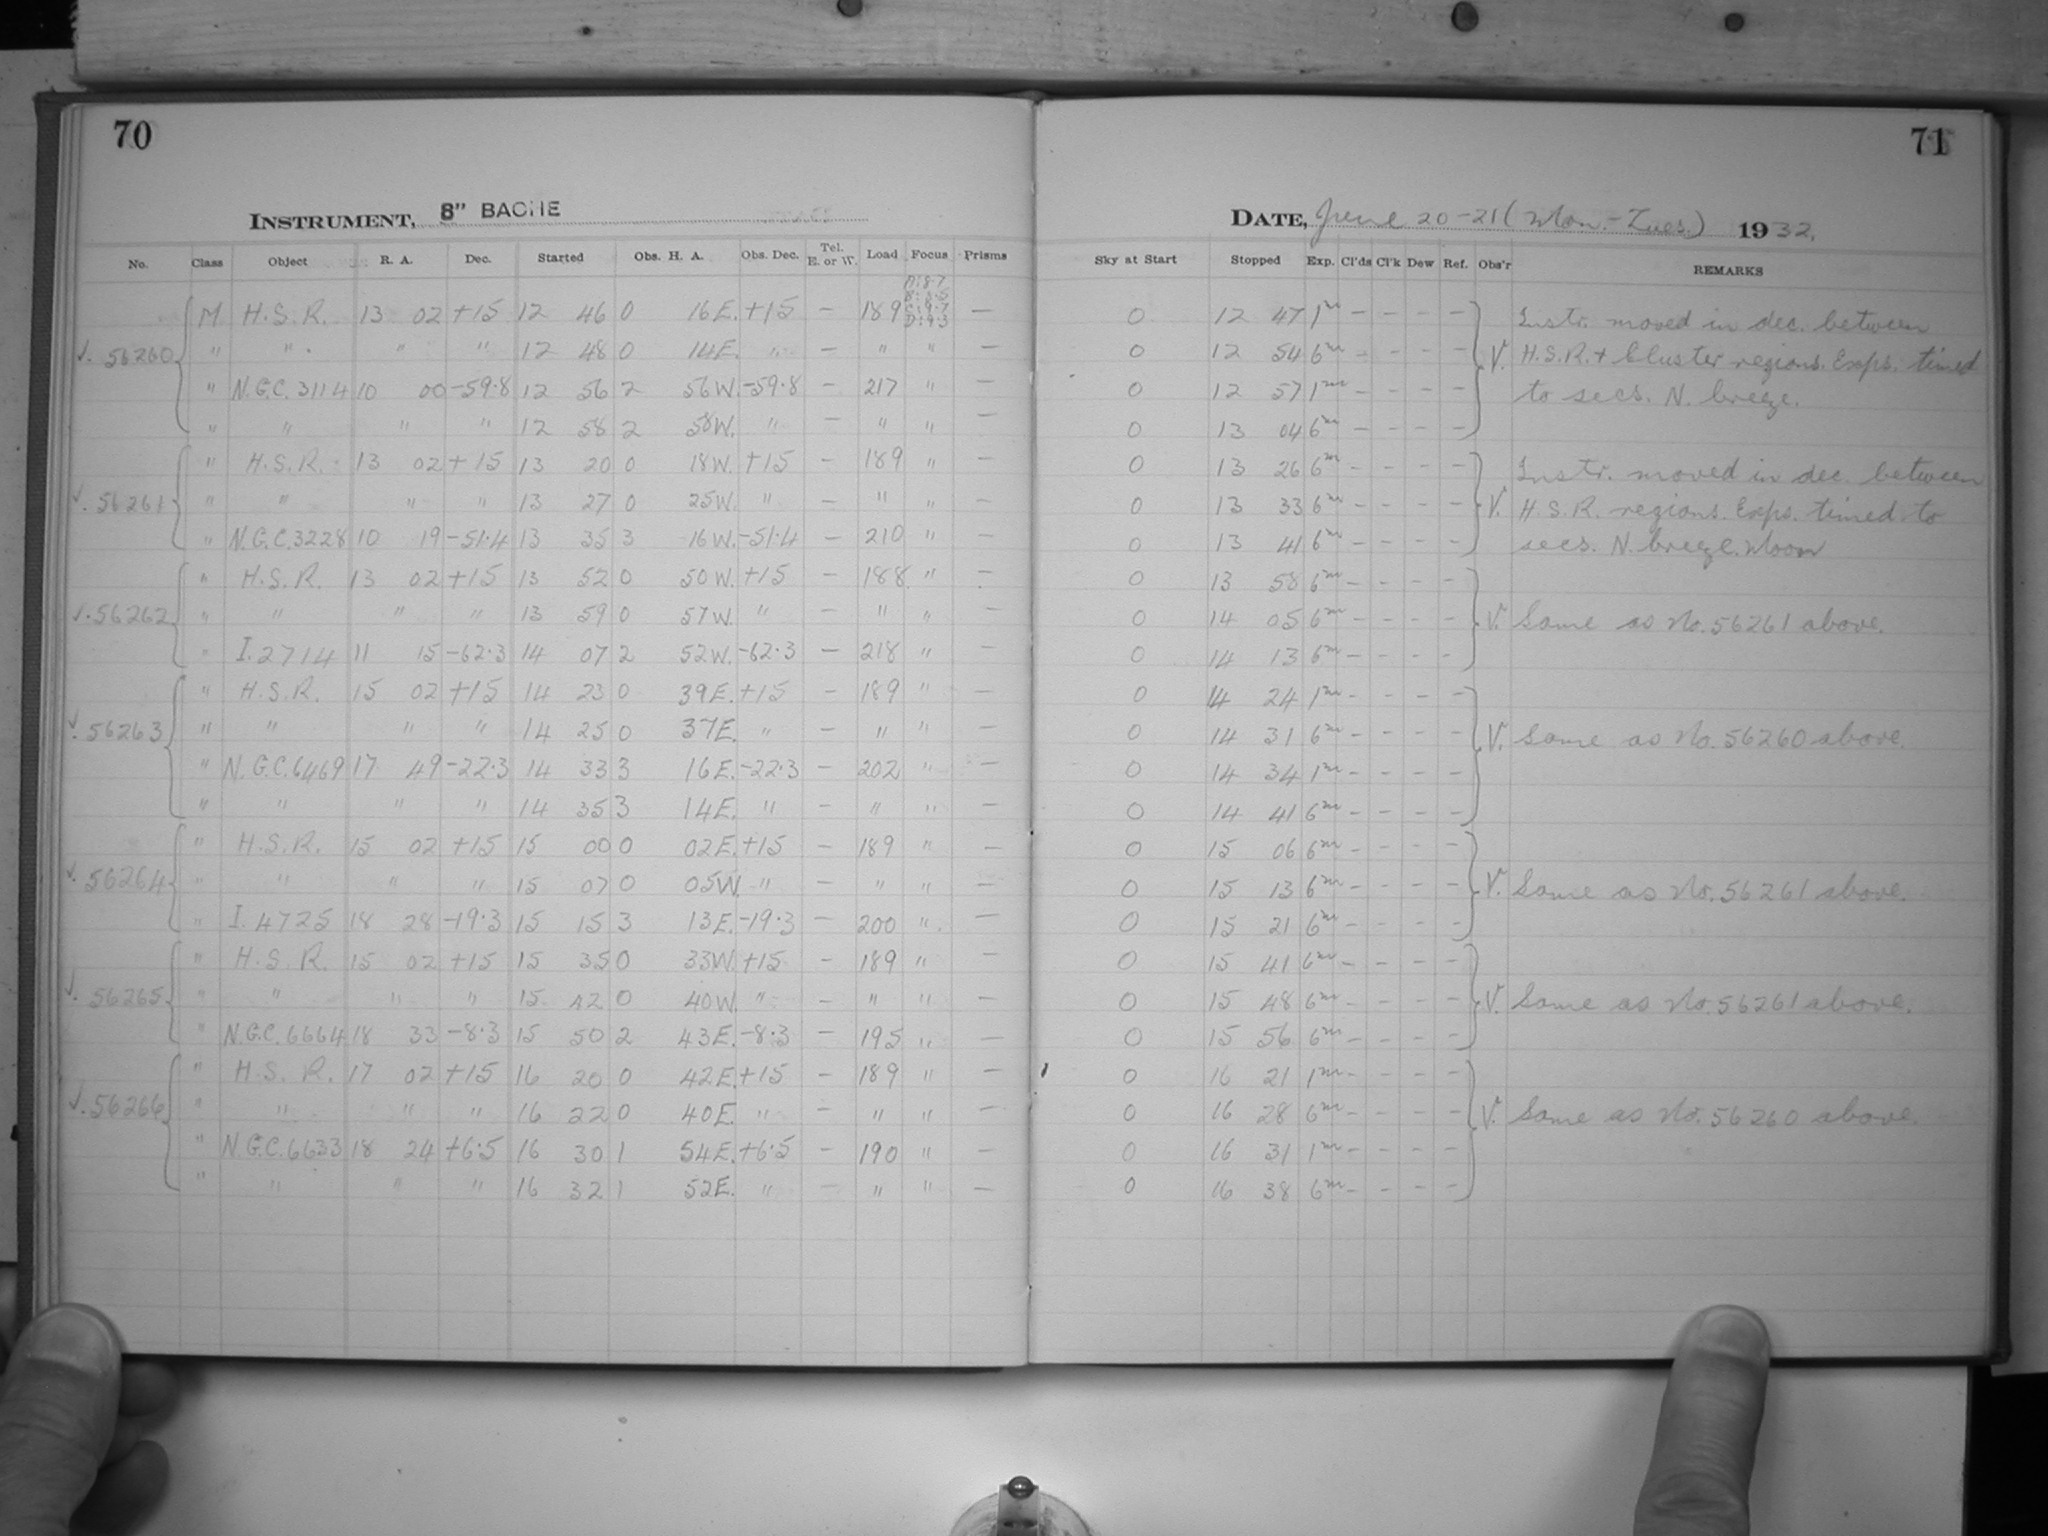 70
INSTRUMENT, 8" BACHE
No. Class Object R. A. Dec. Started Obs. H. A. Obs. Dec. Tel. E. or W. Load Focus Prisms
M H.S.R. 13 02 +15 12 46 0 16E. +15 - 189 -
√. 56260 " " " " 12 48 0 14E. " - " " -
" N.G.C. 3114 10 00 -59.8 12 56 2 56W. -59.8 - 217 " -
" " " " 12 58 2 58W. " - " " -
" H.S.R. 13 02 +15 13 20 0 18W. +15 - 189 " -
√. 56261 " " " " 13 27 0 25W. " - " " -
" N.G.C. 3228 10 19 -51.4 13 35 3 16W. -51.4 - 210 " -
" H.S.R. 13 02 +15 13 52 0 50W. +15 - 188 " -
√. 56262 " " " " 13 59 0 57W. " - " " -
" I. 2714 11 15 -62.3 14 07 2 52W. -62.3 - 218 " -
" H.S.R. 15 02 +15 14 23 0 39E. +15 - 189 " -
√. 56263 " " " " 14 25 0 37E. " - " " -
" N.G.C. 6469 17 49 -22.3 14 33 3 16E. -22.3 - 202 " -
" " " " 14 35 3 14E. " - " " -
" H.S.R. 15 02 +15 15 00 0 02E. +15 - 189 " -
√. 56264 " " " " 15 07 0 05W. " - " " -
" I. 4725 18 28 -19.3 15 15 3 13E. -19.3 - 200 " -
" H.S.R. 15 02 +15 15 35 0 33W. +15 - 189 " -
√. 56265 " " " " 15 42 0 40W. " - " " -
" N.G.C. 6664 18 33 -8.3 15 50 2 43E. -8.3 - 195 " -
" H.S.R. 17 02 +15 16 20 0 42E. +15 - 189 " -
√. 56266 " " " " 16 22 0 40E. " - " " -
" N.G.C. 6633 18 24 +6.5 16 30 1 54E. +6.5 - 190 " -
" " " " 16 32 1 52E. " - " " -
71
DATE, June 20-21 (Mon.-Tues.) 1932.
Sky at Start Stopped Exp. Cl'ds Cl'k Dew Ref. Obs'r REMARKS
0 12 47 1m - - - - Instr. moved in dec. between
0 12 54 6m - - - - V. H.S.R. + Cluster regions. Exps. timed
0 12 57 1m - - - - to secs. N. breeze.
0 13 04 6m - - - -
0 13 26 6m - - - - Instr. moved in dec. between
0 13 33 6m - - - - V. H.S.R. regions. Exps. timed to
0 13 41 6m - - - - secs. N. breeze. Moon
0 13 58 6m - - - -
0 14 05 6m - - - - V. Same as No. 56261 above.
0 14 13 6m - - - -
0 14 24 1m - - - -
0 14 31 6m - - - - V. Same as No. 56260 above.
0 14 34 1m - - - -
0 14 41 6m - - - -
0 15 06 6m - - - -
0 15 13 6m - - - - V. Same as No. 56261 above.
0 15 21 6m - - - -
0 15 41 6m - - - -
0 15 48 6m - - - - V. Same as No. 56261 above.
0 15 56 6m - - - -
0 16 21 1m - - - -
0 16 28 6m - - - - V. Same as No. 56260 above.
0 16 31 1m - - - -
0 16 38 6m - - - -